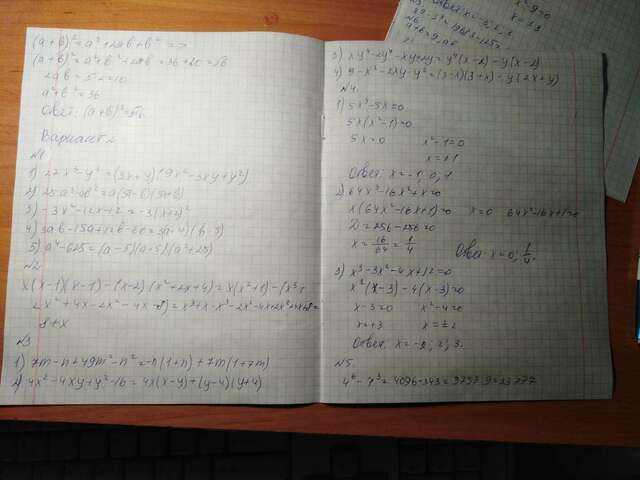 (a+b)²=a²+2ab+b² =>
(a+b)²=a²+b²+2ab=36+20=56
2ab=5·2=10
a²+b²=36
Ответ: (a+b)²=56
Вариант 2
N1
1) 27x³-y³=(3x-y)(9x²-3xy+y²)
2) 25a³-ab²=a(5a-b)(5a+b)
3) -3x²-12x-12=-3(x+2)²
4) 3ab-15a+12b-60=3a+4)(b-5)
5) a⁴-625=(a-5)(a+5)(a²+25)
N2
x(x-1)(x-1)-(x-2)(x²+2x+4)=x(x²+1)-(x³+
2x²+4x-2x²-4x-8)=x³+x-x³-2x²-4x+2x²+4x+8=
8+x
N3
1) 7m-n+49m²-n²=-n(1+n)+7m(1+7m)
2) 4x²-4xy+y²-16=4x(x-y)+(y-4)(y+4)
3) xy⁴-2y⁴-xy+2y=y⁴(x-2)-y(x-2)
4) 9-x²-2xy-y²=(3-x)(3+x)-y(2x+y)
N4.
1) 5x³-5x=0
5x(x²-1)=0
5x=0 x²-1=0
x=±1
Ответ: x=-1, 0, 1
2) 64x³-16x²+x=0
x(64x²-16x+1)=0 x=0 64x²-16x+1=0
D=256-256=0
x=16/64=1/4
x=0; 1/4.
3) x³-3x²-4x+12=0
x²(x-3)-4(x-3)=0
x-3=0 x²-4=0
x=+3 x=±2
Ответ: x=-2, 2, 3.
N5.
4⁶-7³=4096-343=3753·9=33777
x²-9=0
x=±3